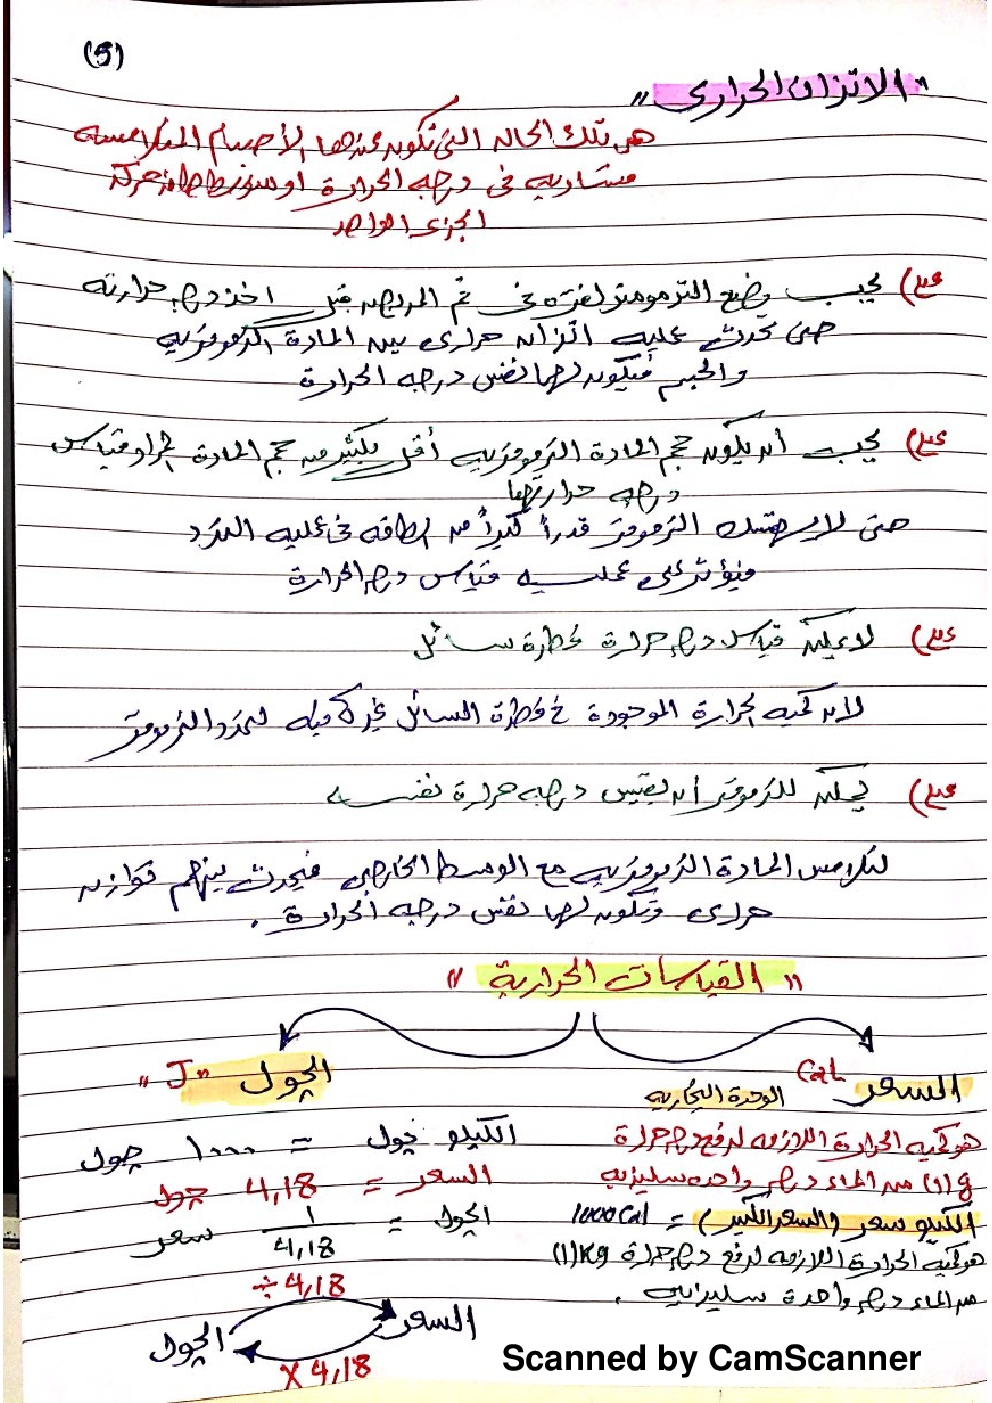 (5)
"الاتزان الحرارى"
هى تلك الحاله التى تكون عندها الأجسام المتلامسه
متساويه فى درجه الحرارة او متوسط طاقة حركة
الجزئ الواحد
علل) يجب وضع الترمومتر لفتره فى فم المريض قبل اخذ درجه حرارته
حتى يحدث عليه اتزان حرارى بين المادة الترمومتريه
والجسم فيكون لهما نفس درجه الحرارة
علل) يجب أن يكون حجم المادة الترمومتريه أقل بكثير من حجم المادة المراد قياس
درجه حرارتها
حتى لا يستهلك الترمومتر قدراً كبيراً من الطاقه فى عمليه التمدد
فيؤثر على عمليه قياس درجه الحرارة
علل) لا يمكن قياس درجه حرارة قطرة سائل
لان كميه الحرارة الموجودة فى قطرة السائل غير كافيه لتمدد الترمومتر
علل) يمكن للترمومتر أن يقيس درجه حرارة نفسه
لتلامس المادة الترمومتريه مع الوسط الخارجى فيحدث بينهم توازن
حرارى وتكون لهما نفس درجه الحرارة .
"القياسات الحرارية"
السعر Cal
الوحدة التجاريه
هو كميه الحرارة اللازمه لرفع درجه حرارة
(1) g من الماء درجه واحده سليزيه
الكيلو سعر (السعر الكبير) = 1000 Cal
هو كميه الحرارة اللازمه لرفع درجه حرارة (1) Kg
من الماء درجه واحدة سليزيه .
الچول "J"
الكيلو چول = ١٠٠٠ چول
السعر = 4,18 چول
الچول = ١/4,18 سعر
÷ 4,18
السعر
الچول
X 4,18
Scanned by CamScanner